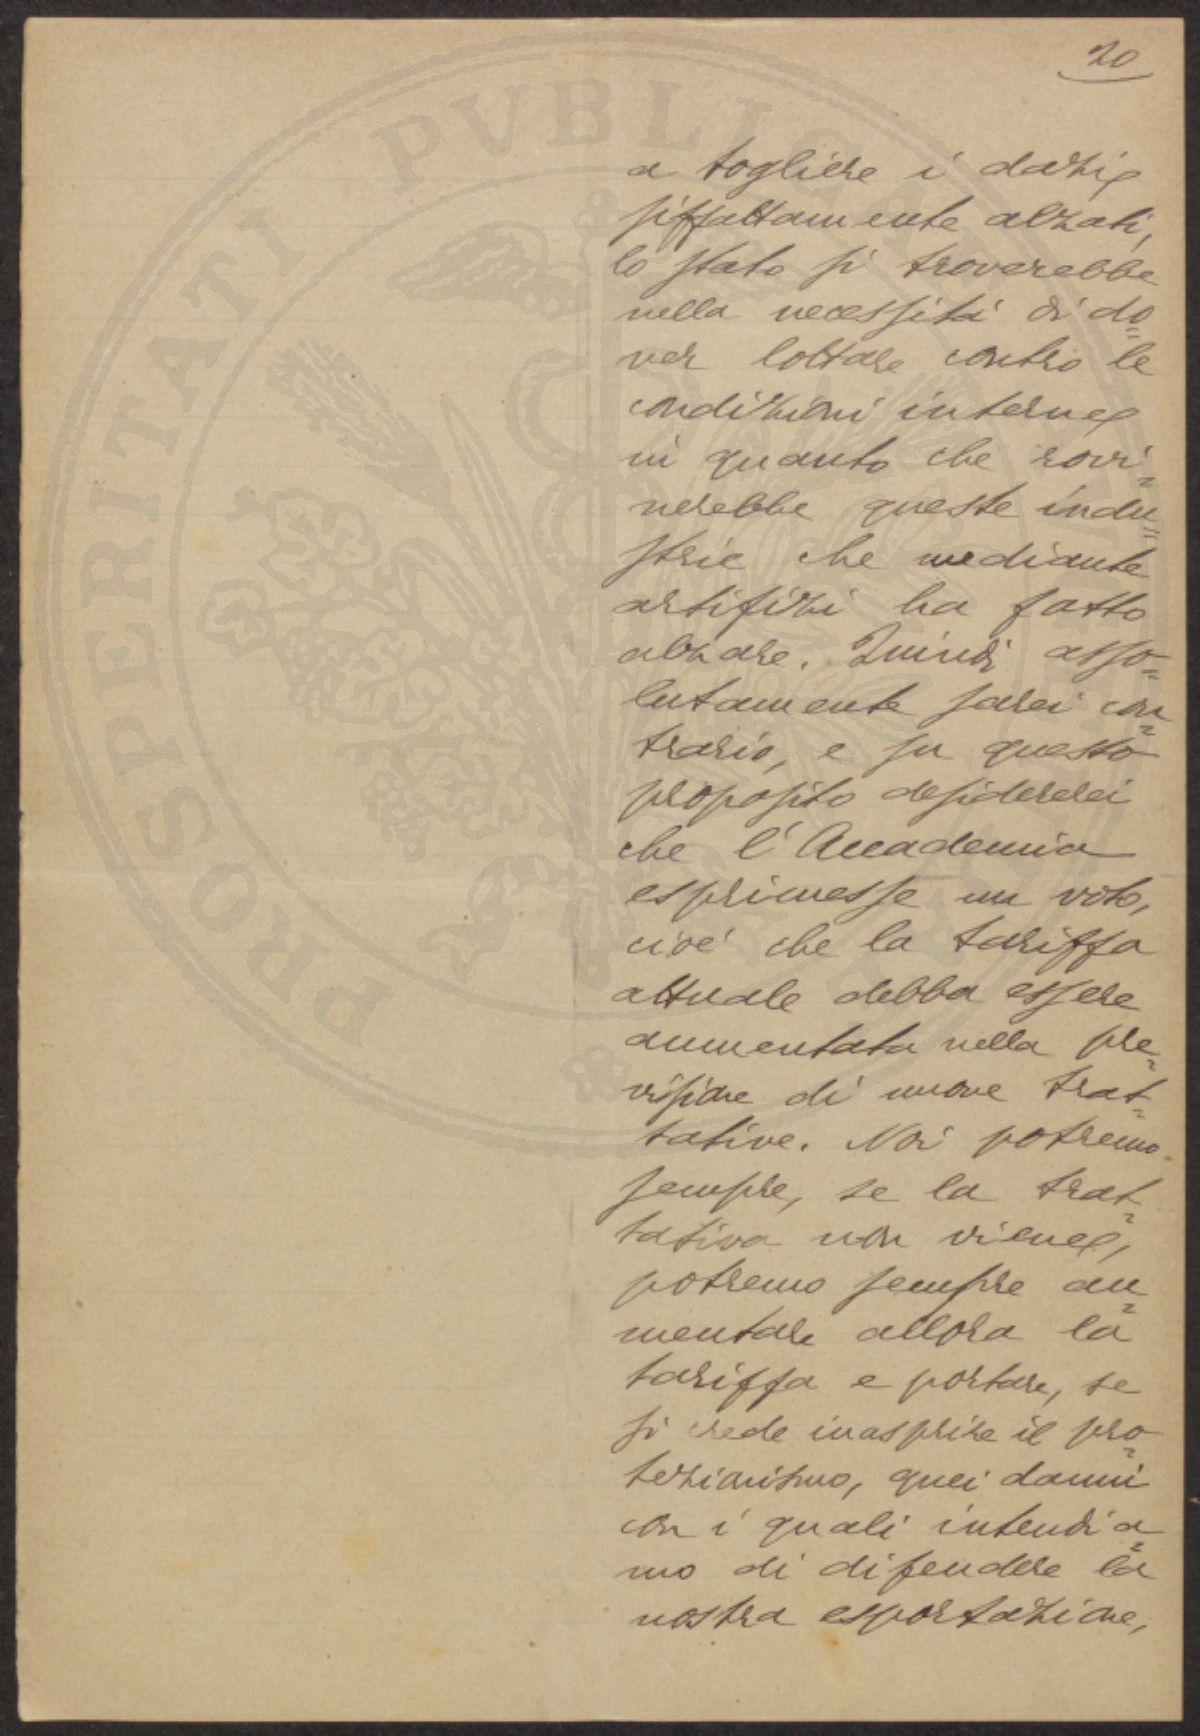 20
a togliere i dazi
siffattamente alzati,
lo stato si troverebbe
nella necessità di do=
ver lottare contro le
condizioni interne
in quanto che rovi=
nerebbe queste indu=
strie che mediante
artifizi ha fatto
alzare. Quindi asso=
lutamente sarei con=
trario, e su questo
proposito desidererei
che l'Accademia
esprimesse un voto,
cioè che la tariffa
attuale debba essere
aumentata nella pre=
visione di nuove trat=
tative. Noi potremo
sempre, se la trat=
tativa non viene,
potremo sempre au=
mentare allora la
tariffa e portare, se
si crede inasprire il pro=
tezionismo, quei danni
con i quali intendia=
mo di difendere la
nostra esportazione,
PROSPERITATI PVBLICAE